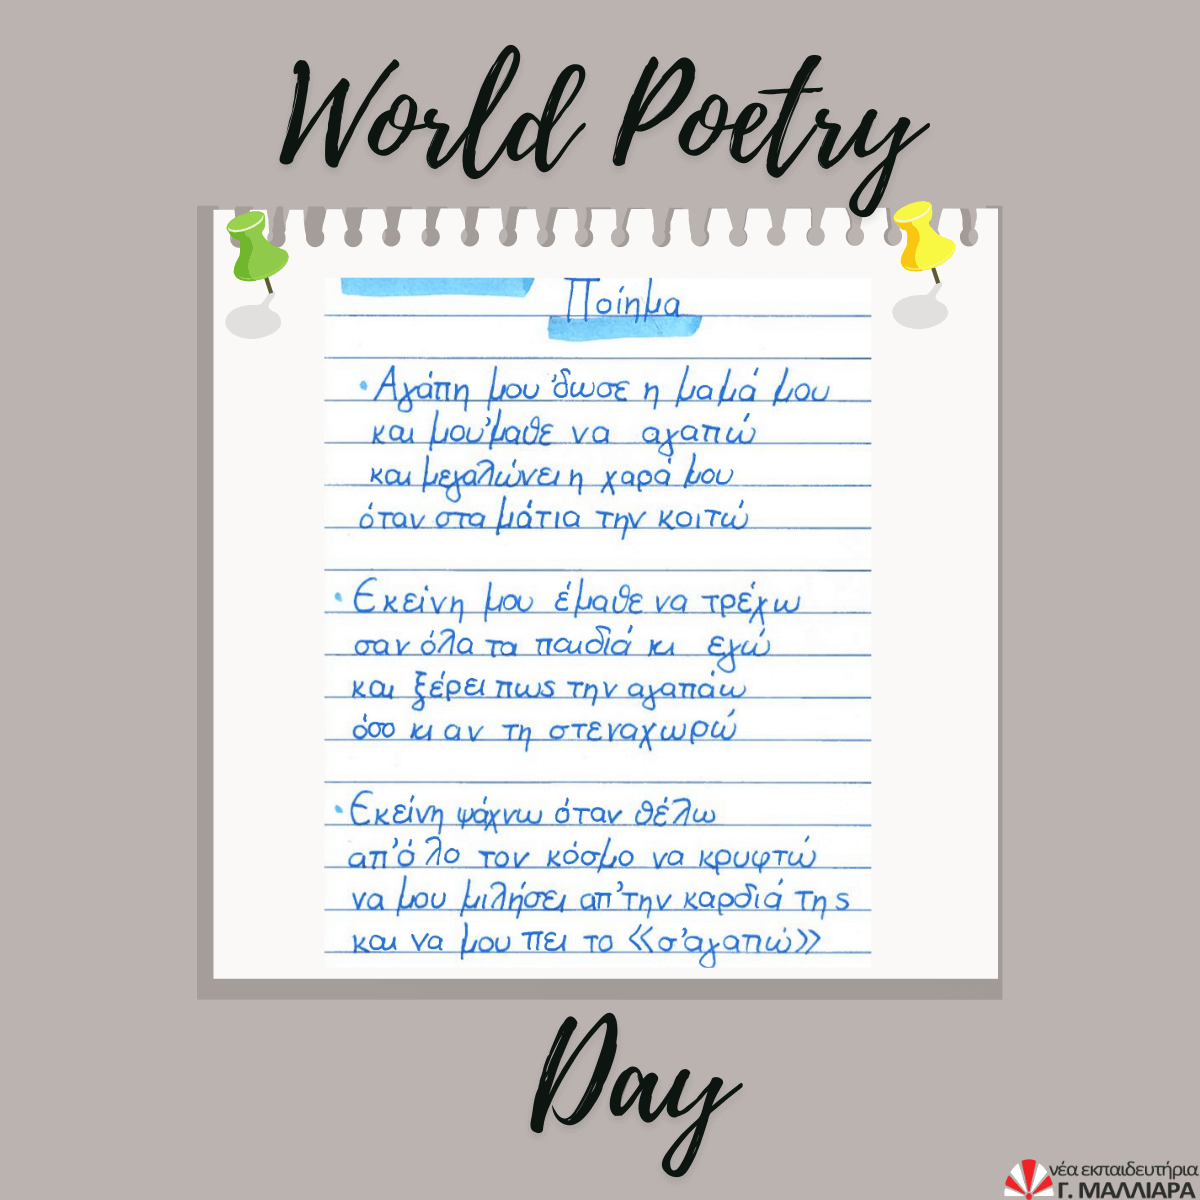 World Poetry
Ποίημα
• Αγάπη μου 'δωσε η μαμά μου
και μου'μαθε να αγαπώ
και μεγαλώνει η χαρά μου
όταν στα μάτια την κοιτώ
• Εκείνη μου έμαθε να τρέχω
σαν όλα τα παιδιά κι εγώ
και ξέρει πως την αγαπάω
όσο κι αν τη στεναχωρώ
• Εκείνη ψάχνω όταν θέλω
απ'όλο τον κόσμο να κρυφτώ
να μου μιλήσει απ'την καρδιά της
και να μου πει το <<σ'αγαπώ>>
Day
νέα εκπαιδευτήρια
Γ. ΜΑΛΛΙΑΡΑ